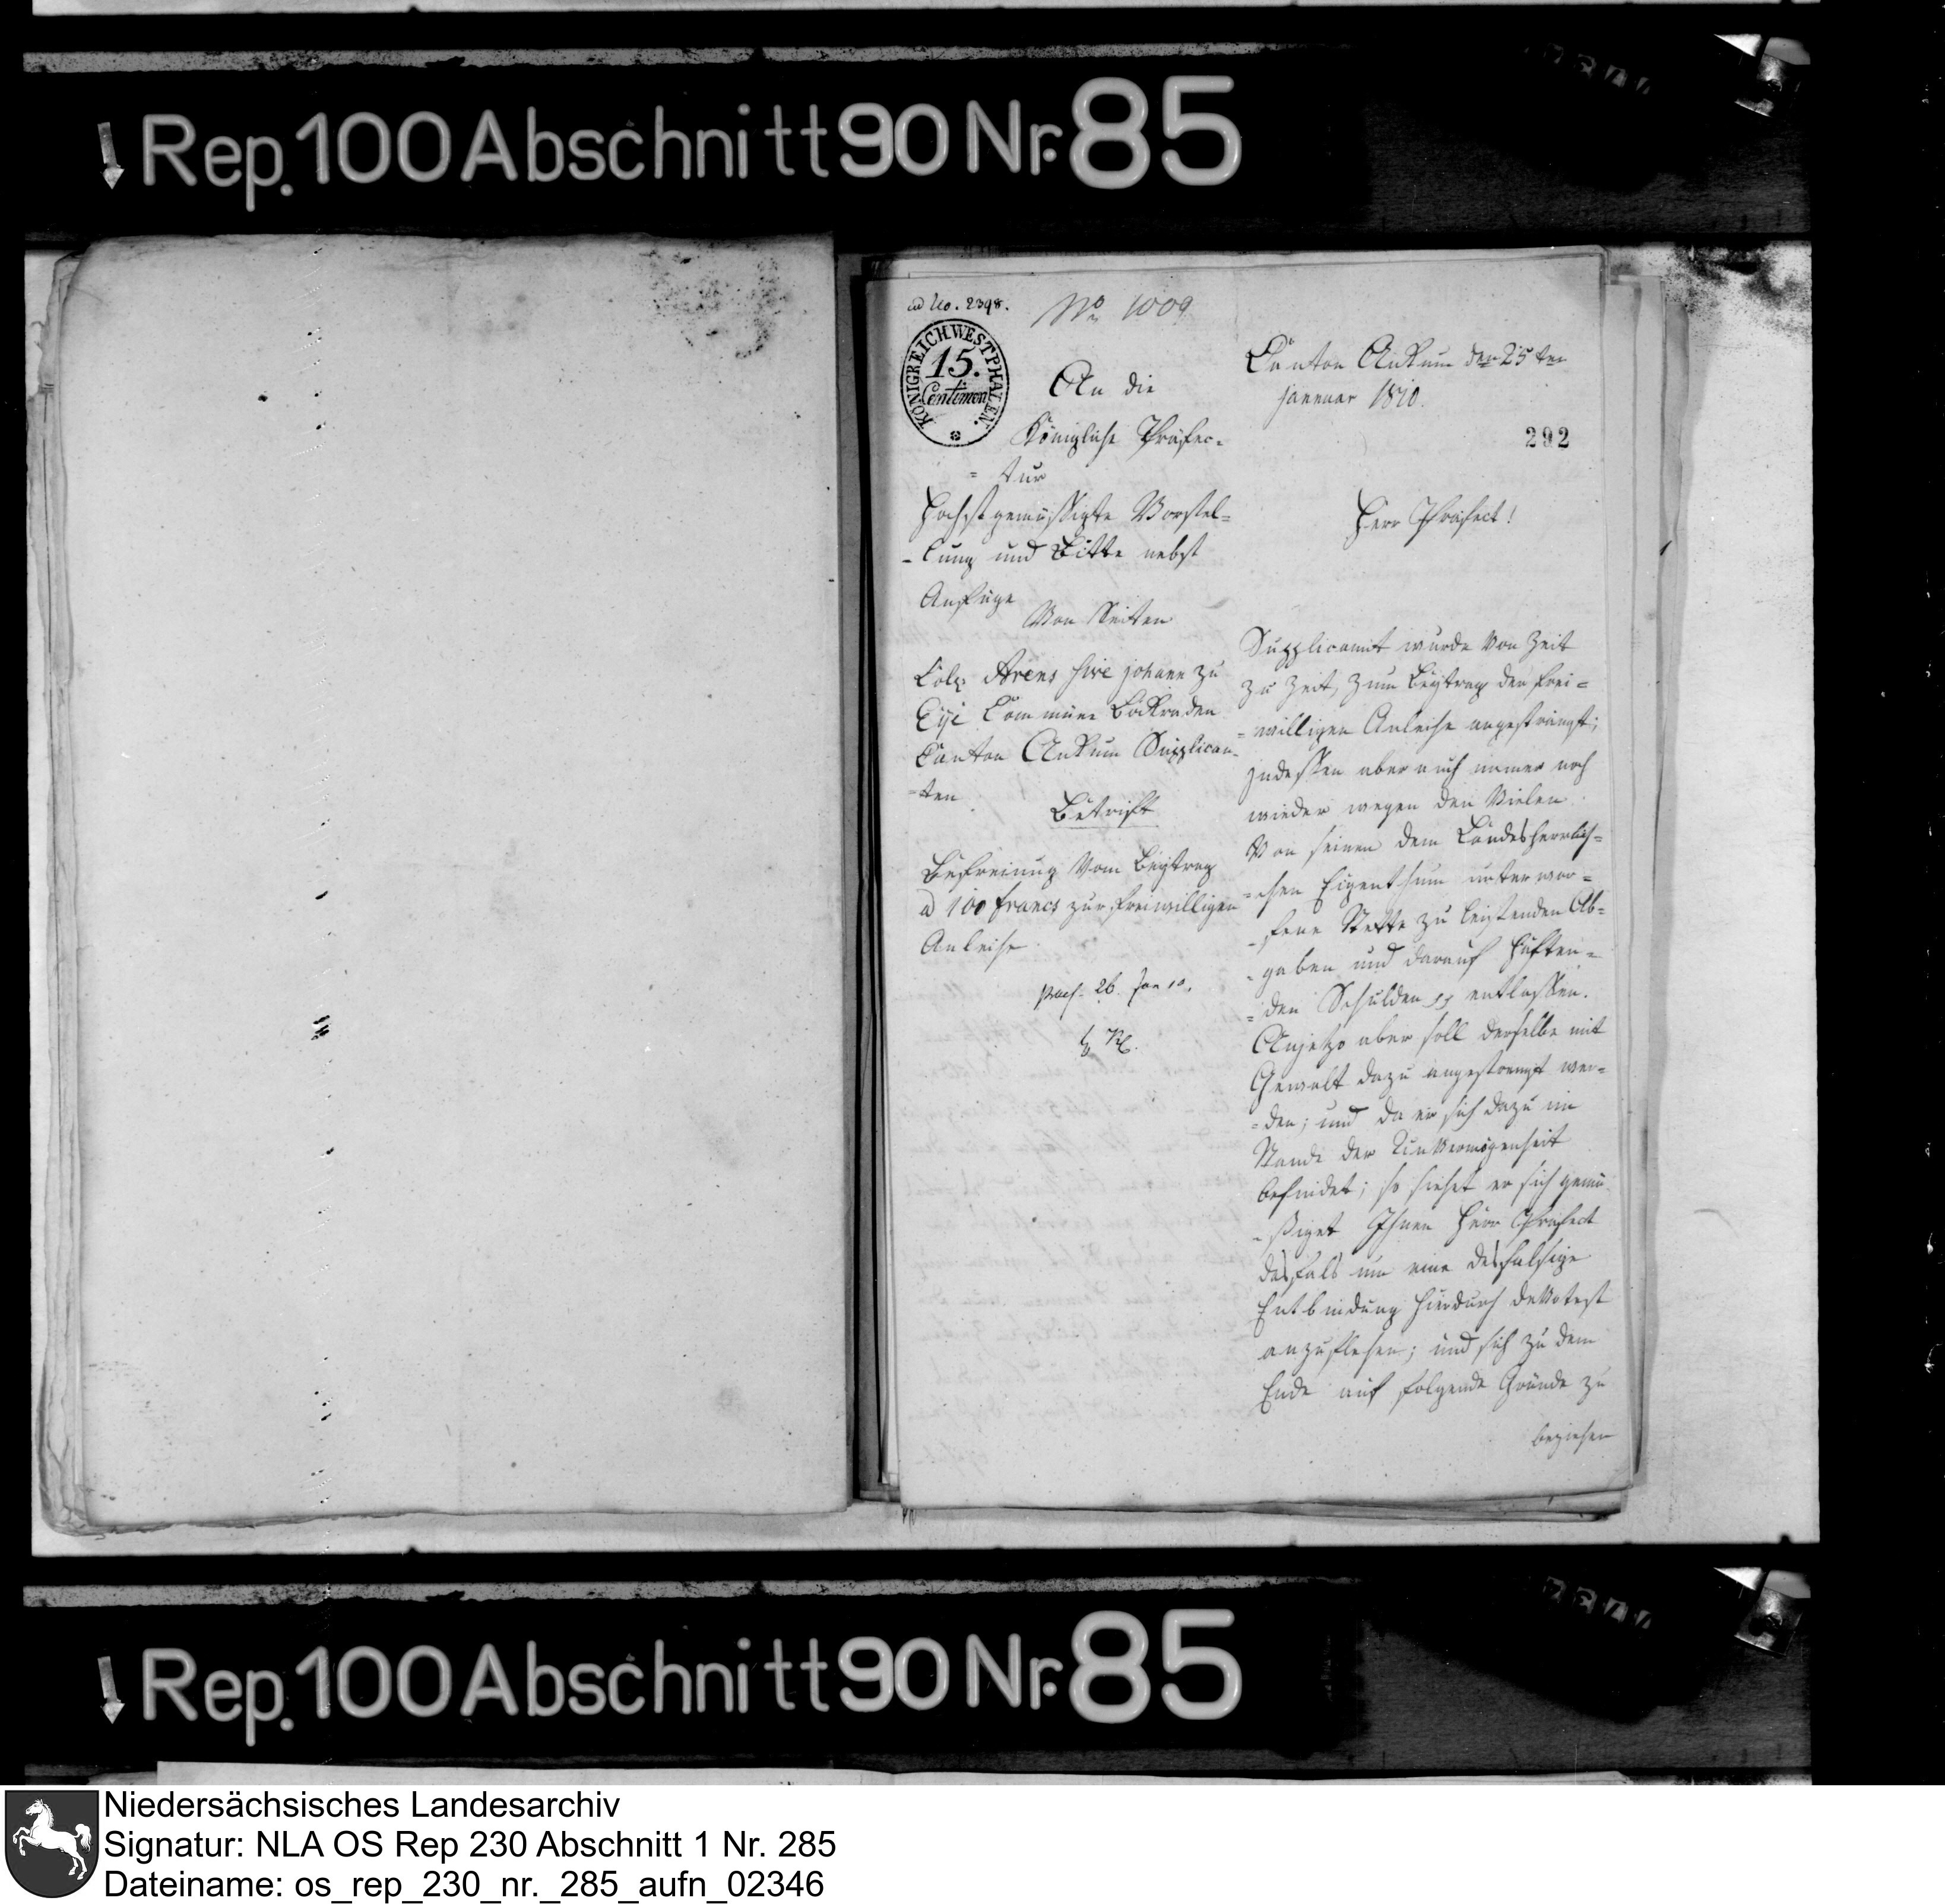 Rep. 100 Abschnitt 90 Nr. 85
ad No. 2398.
No 1009
KÖNIGREICH WESTPHALEN.
15.
Centimen
An die
Königliche Präfec=
= tur
Höchstgemüssigte Vorstel=
- lung und Bitte nebst
Anfüge
Von Seiten
Colp Arens sive johann zu
Eye Commune Bockraden
Canton Ankum Supplican-
= ten
Betrift
Befreiung Vom Beytrag
a 100 francs zur freiwilligen
Anleihe
praes. 26. Jan 10.
Canton Ankum den 25 ten
januar 1810.
292
Herr Präfect!
Supplicant wurde Von Zeit
zu Zeit, zum Beytrag der frei=
= willigen Anleihe angestrengt;
jndessen aber auch immer noch
wieder wegen den Vielen
Von seinen dem Landesherrlich=
= chen Eigenthum unterwor=
- fene Stette zu leistenden Ab=
- gaben und darauf haften=
= den Schulden entlassen.
Anjetzo aber soll derselbe mit
Gewalt dazu angestrengt wer=
= den; und da er sich dazu im
Stande der Unvermögenheit
befindet; so siehet er sich gemü
- ssiget Ihnen Herr Präfect
desfals um eine desfalsige
Entbindung hierdurch devotest
anzuflehen; und sich zu dem
Ende auf folgende Gründe zu
beziehen
Rep. 100 Abschnitt 90 Nr. 85
Niedersächsisches Landesarchiv
Signatur: NLA OS Rep 230 Abschnitt 1 Nr. 285
Dateiname: os_rep_230_nr._285_aufn_02346